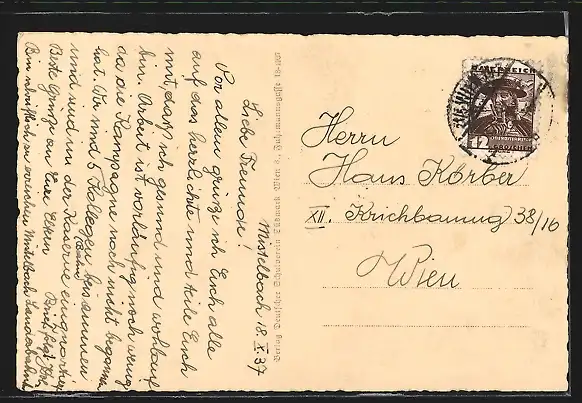 Mistelbach 18.X.37
Liebe Freunde!
Vor allem grüße ich Euch alle
auf das herzlichste und teile Euch
mit, daß ich gesund und wohlauf
bin. Arbeit ist vorläufig noch wenig
da die Kampagne noch nicht begonnen
hat. Wir sind 5 Kollegen beisammen
(Bahn)
und sind in der Kaserne einquartiert
Beste Grüße an Eure Eltern
Bin nämlich zu Mistelbach Landesbahn
Verlag Deutscher Schulverein Südmark Wien 8., Fuhrmannsgasse 18
ÖSTERREICH
12
GROSCHEN
Herrn
Hans Körber
XII. Krichbaumg 38/16
Wien